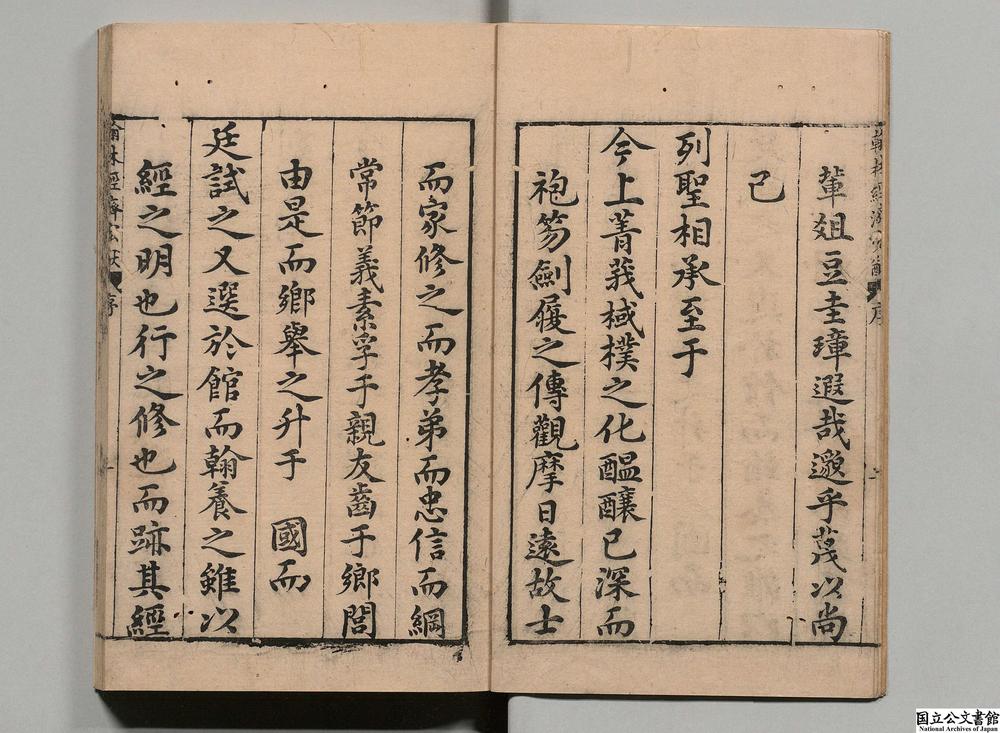 軰俎豆圭璋遐哉邈乎蔑以尚
已
列聖相承至于
今上菁莪棫樸之化醖釀已深而
袍笏劍履之傳觀摩日遠故士
而家修之而孝弟而忠信而綱
常節義素孚于親友齒于鄉閭
由是而鄉舉之升于 國而
廷試之又選於館而翰養之雖以
經之明也行之修也而跡其經
翰林經濟宏猷 序
国立公文書館
National Archives of Japan